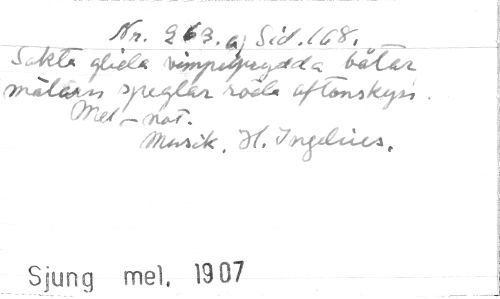 Nr. 263. a) Sid. 168.
Sakta glida vimpelprydda båtar
mälarn speglar röda aftonskyn.
Mel-not.
Musik. H. Ingelius.
Sjung mel. 1907